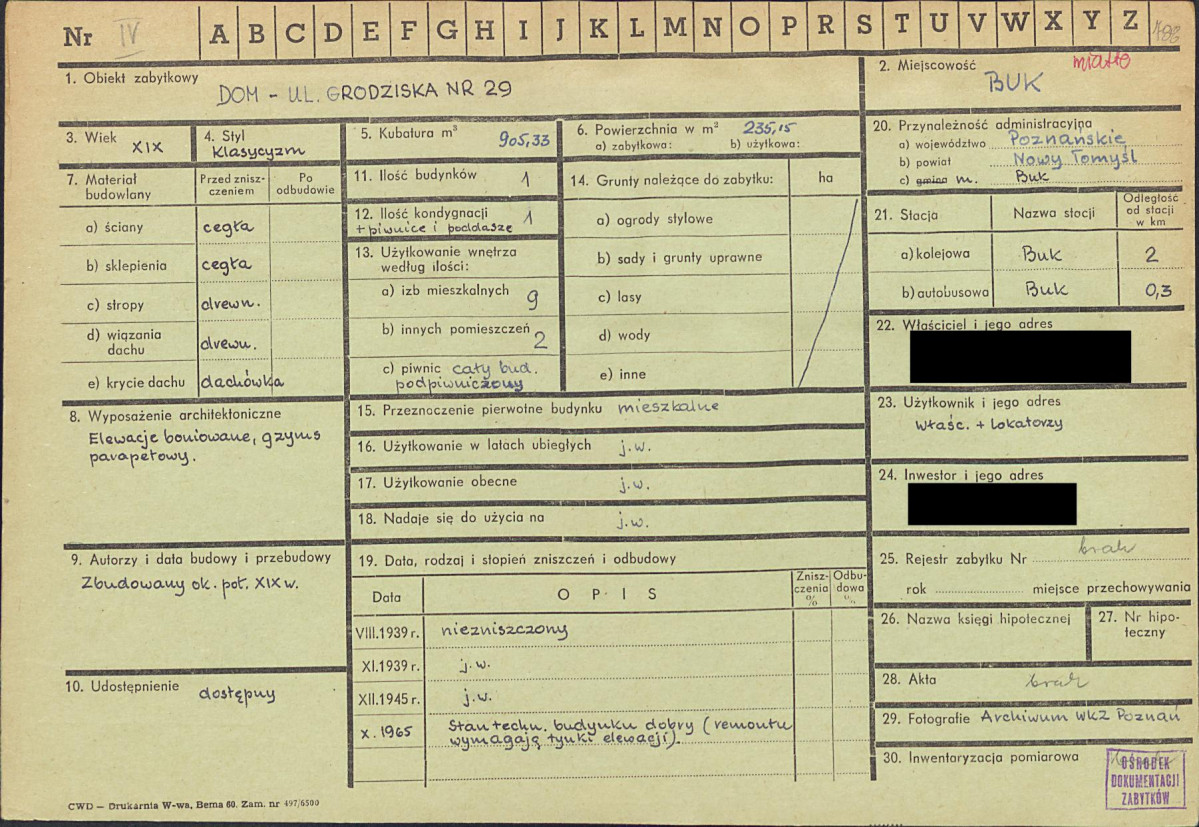 Nr IV A B C D E F G H I J K L M N O P R S T U V W X Y Z
1. Obiekt zabytkowy
DOM - UL. GRODZISKA NR 29
2. Miejscowość miasto
BUK
3. Wiek XIX
4. Styl
Klasycyzm
5. Kubatura m³ 905,33
6. Powierzchnia w m² 235,15
a) zabytkowa: b) użytkowa:
7. Materiał budowlany
Przed zniszczeniem
Po odbudowie
a) ściany cegła
b) sklepienia cegła
c) stropy drewn.
d) wiązania dachu drewn.
e) krycie dachu dachówka
8. Wyposażenie architektoniczne
Elewacje boniowane, gzyms
parapetowy.
9. Autorzy i data budowy i przebudowy
Zbudowany ok. poł. XIX w.
10. Udostępnienie dostępny
11. Ilość budynków 1
12. Ilość kondygnacji 1
+ piwnice i poddasze
13. Użytkowanie wnętrza
według ilości:
a) izb mieszkalnych 9
b) innych pomieszczeń 2
c) piwnic cały bud.
podpiwniczony
14. Grunty należące do zabytku: ha
a) ogrody stylowe
b) sady i grunty uprawne
c) lasy
d) wody
e) inne
15. Przeznaczenie pierwotne budynku mieszkalne
16. Użytkowanie w latach ubiegłych j.w.
17. Użytkowanie obecne j.w.
18. Nadaje się do użycia na j.w.
19. Data, rodzaj i stopień zniszczeń i odbudowy
Data OPIS Zniszczenia % Odbudowa %
VIII.1939 r. niezniszczony
XI.1939 r. j.w.
XII.1945 r. j.w.
X.1965 Stan techn. budynku dobry (remontu
wymagają tynki elewacji).
20. Przynależność administracyjna
a) województwo Poznańskie
b) powiat Nowy Tomyśl
c) gmina m. Buk
21. Stacja Nazwa stacji Odległość od stacji w km
a) kolejowa Buk 2
b) autobusowa Buk 0,3
22. Właściciel i jego adres
23. Użytkownik i jego adres
Właśc. + lokatorzy
24. Inwestor i jego adres
25. Rejestr zabytku Nr brak
rok miejsce przechowywania
26. Nazwa księgi hipotecznej
27. Nr hipoteczny
28. Akta brak
29. Fotografie Archiwum WKZ Poznań
30. Inwentaryzacja pomiarowa
OŚRODEK
DOKUMENTACJI
ZABYTKÓW
CWD — Drukarnia W-wa, Bema 60. Zam. nr 497/6500